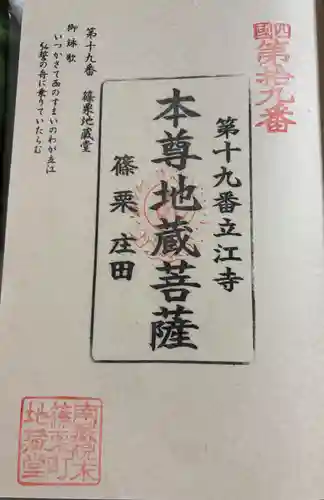 四國
第拾九番
第十九番立江寺
本尊地蔵菩薩
篠栗庄田
第十九番 篠栗地蔵堂
御詠歌
いつかさて西のすまいのわが立江
弘誓の舟に乗りていたらむ
篠栗町
地蔵堂